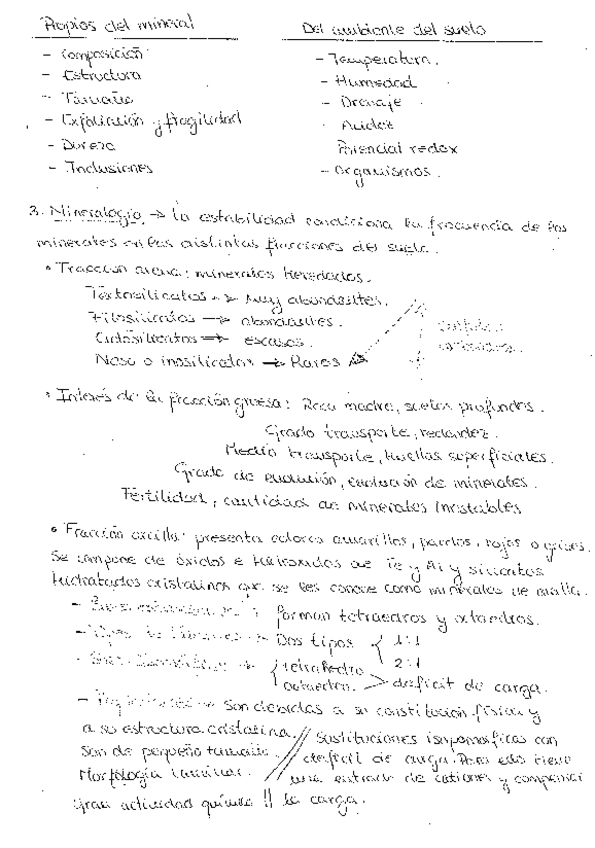 Propios del mineral
Del ambiente del suelo
- Composición
- Estructura
- Tamaño
- Exfoliación y fragilidad
- Dureza
- Inclusiones
- Temperatura.
- Humedad
- Drenaje
Acidez
Potencial redox
- Organismos.
3. Mineralogía → La estabilidad condiciona la frecuencia de los
minerales en las distintas fracciones del suelo.
• Fracción arena: minerales heredados.
Tectosilicatos → Muy abundantes.
Filosilicatos → abundantes.
Ciclosilicatos → escasos.
Neso o inosilicatos → Raros
• Interés de la fracción gruesa: Roca madre, suelos profundos.
Grado transporte, redondez.
Medio transporte, huellas superficiales.
Grado de evolución, evolución de minerales.
Fertilidad, cantidad de minerales inestables
• Fracción arcilla: presenta colores amarillos, pardos, rojos o grises.
Se compone de óxidos e hidróxidos de Fe y Al y silicatos
hidratados cristalinos que se les conoce como minerales de arcilla.
forman tetraedros y octaedros.
Dos tipos { 1:1
2:1
{ tetraedro
octaedro. > deficit de carga.
- Propiedades → Son debidas a su constitución física y
a su estructura cristalina.
Son de pequeño tamaño.
Morfología laminar.
Gran actividad química !!
Sustituciones isomorficas con
deficit de carga. Para ello tiene
una entrada de cationes y compensar
la carga.